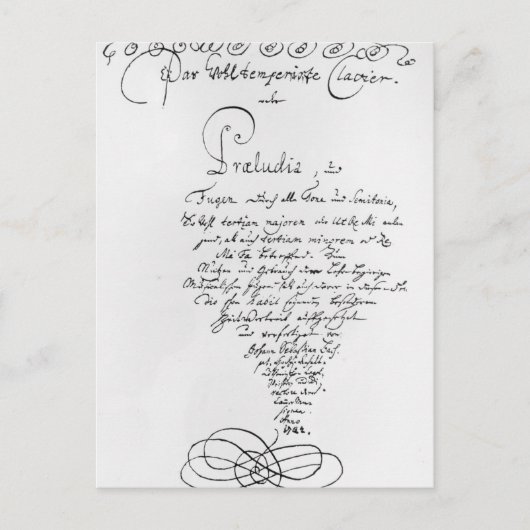 Das Wohltemperirte Clavier.
oder
Præludia, und
Fugen durch alle Tone und Semitonia,
So wohl tertiam majorem oder Ut Re Mi anlan-
gend, als auch tertiam minorem oder Re
Mi Fa betreffend. Zum
Nutzen und Gebrauch der Lehrbegierigen
Musicalischen Jugend, als auch derer in diesem stu-
dio schon habil seyenden besonderem
ZeitVertreib auffgesetzet
und verfertiget von
Johann Sebastian Bach.
p. t. HochFürstlich
Anhalt
rectore derer
Cammer
Anno
1722.